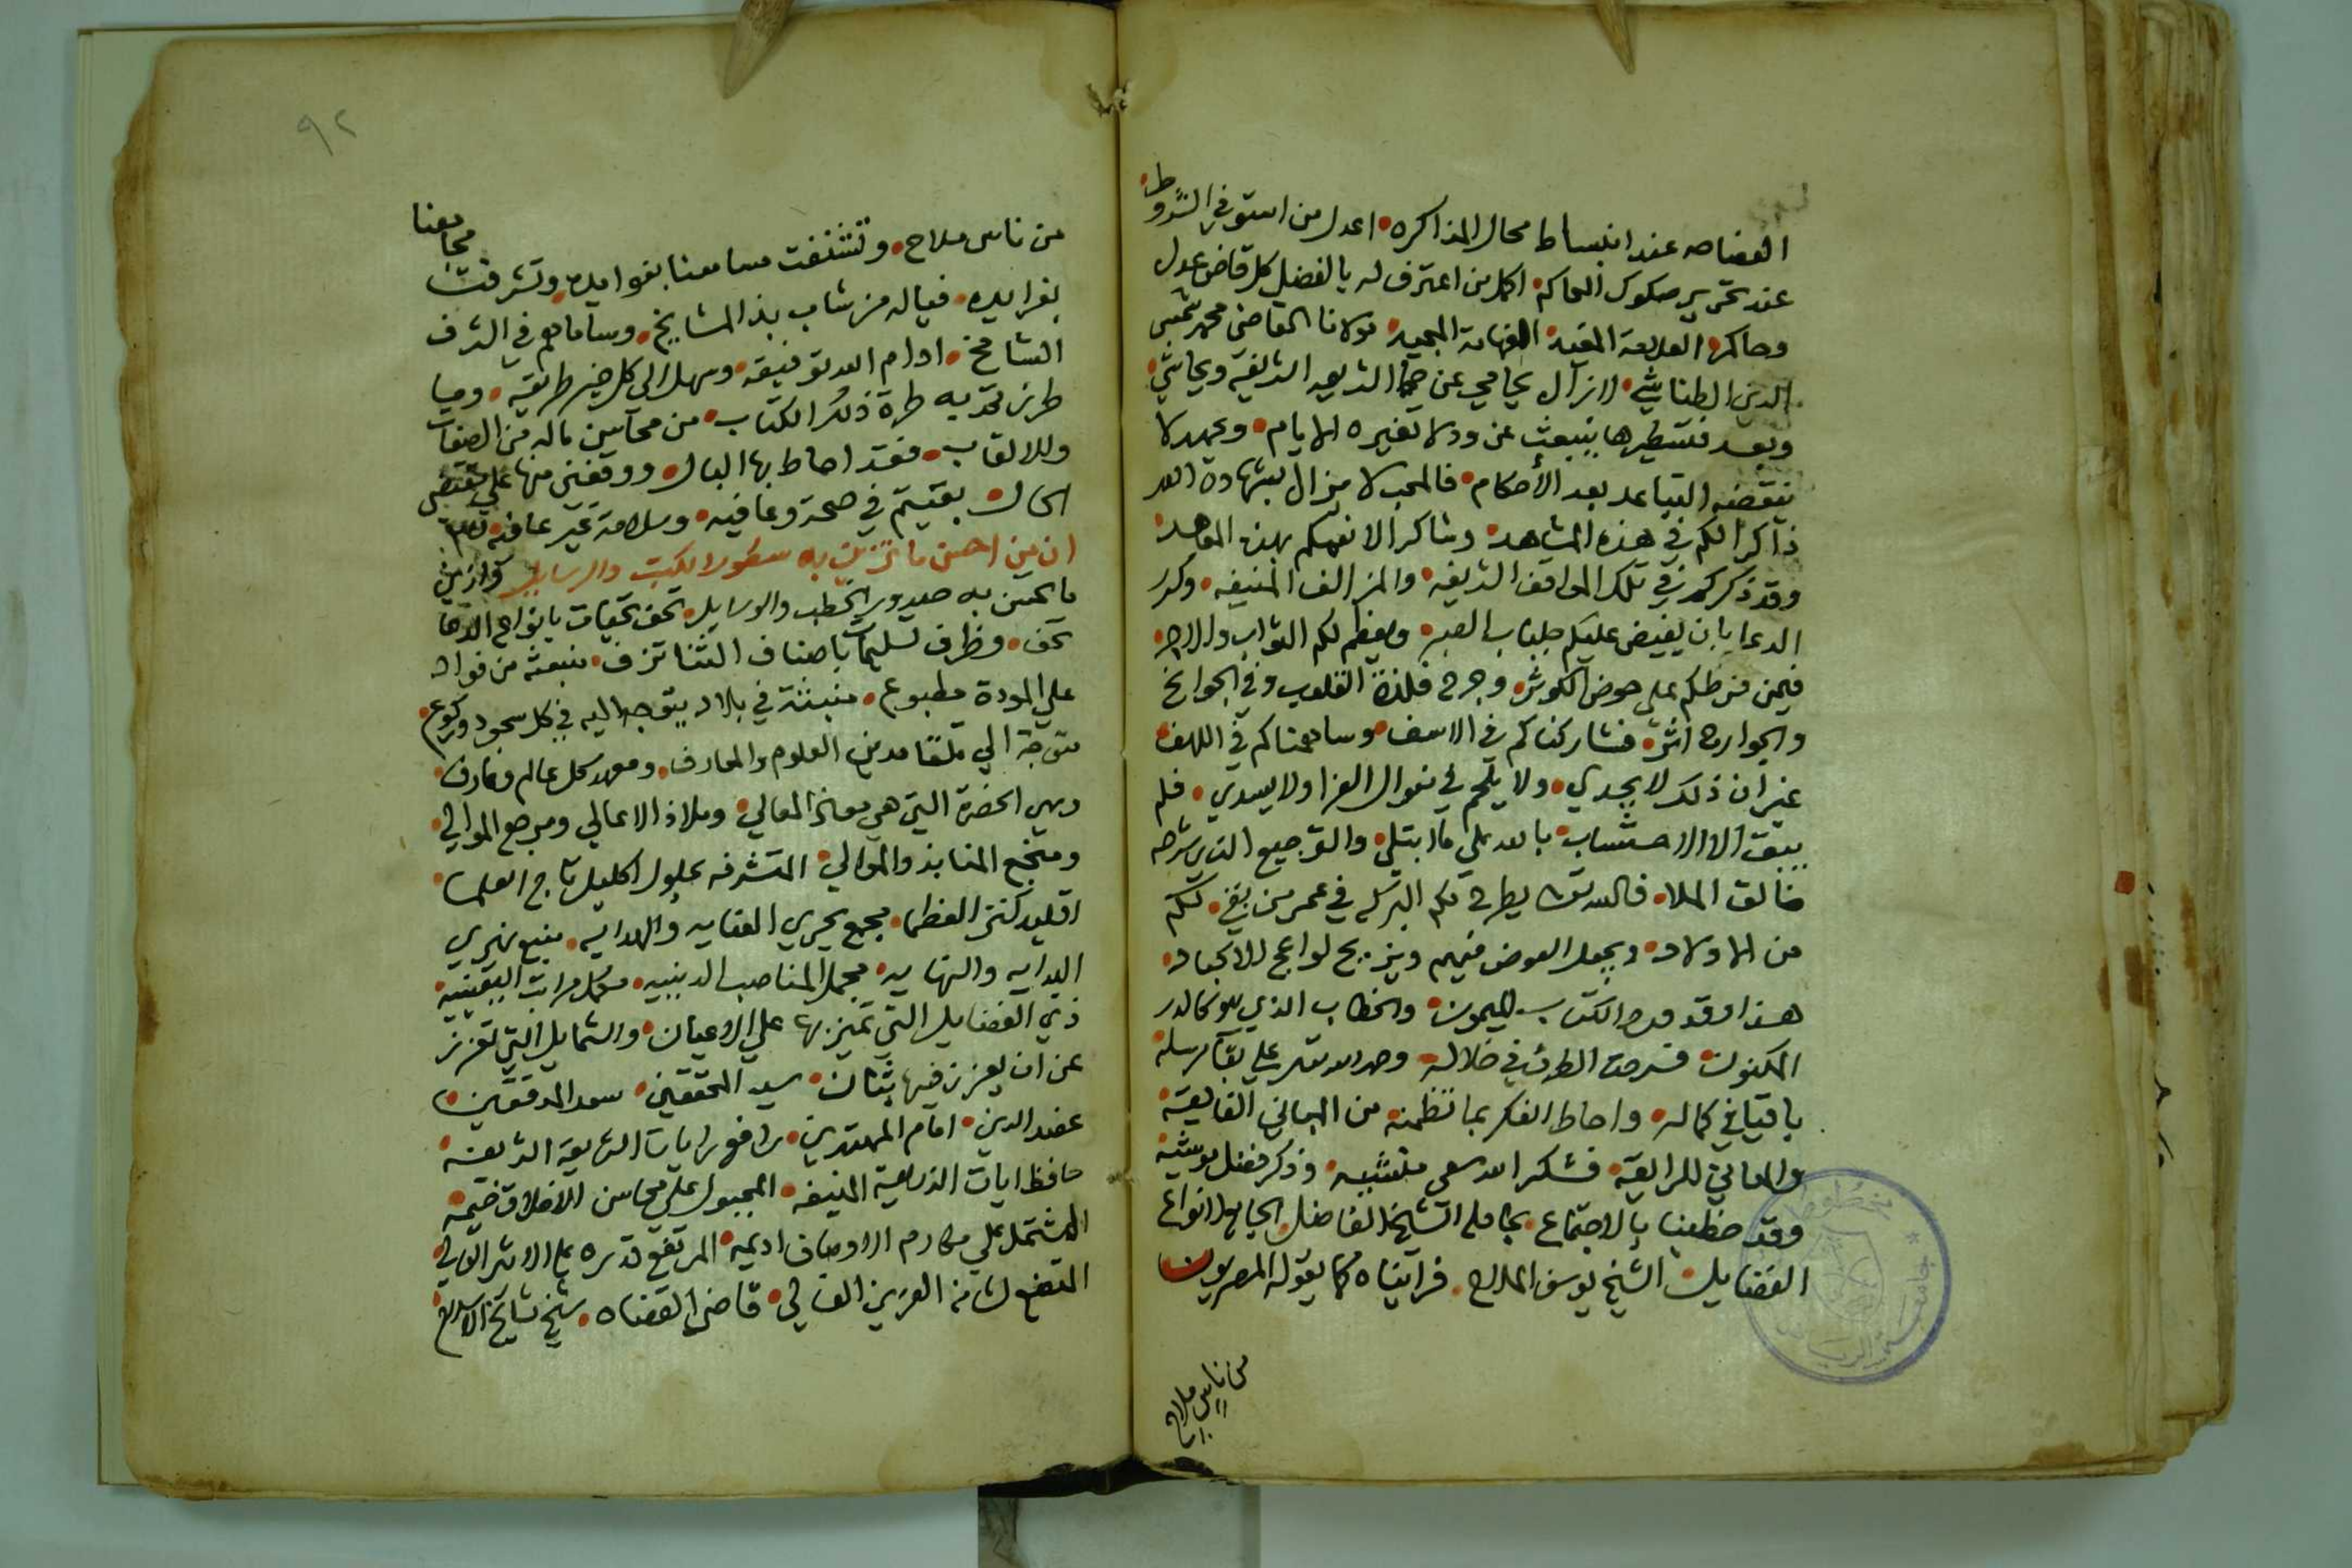 الفضاصه عند انبساط محال المذاكره • اعدل من استوفي الشروط •
عند تحرير صكوك المحاكم • اكمل من اعترف له بالفضل كل قاض عدل
وحاكم • العلامة المفيد • الفهامة المجيد • مولانا القاضي محمد شمس
الدين الطناشي • لازال يحامي عن حما الشريعه الشريفة ويحاشي •
وبعد فتسطيرها ينبعث عن ود لا تغيره الايام • وعهد لا
ينقضه التباعد بعد الأحكام • فالمحب لا يزال بشهادة الله
ذاكرا لكم في هذه المشاهد • وشاكرا لانعمكم بهذه المعاهد •
وقد ذكركم في تلك المواقف الشريفه • والمزالف المنيفه • وكرر
الدعا بان يفيض عليكم جلباب الصبر • ويعظم لكم الثواب والاجر •
فيمن فرطكم على حوض الكوثر • وجرح فلذة القلوب وفي الجوانح
والجوارح اثر • فشاركناكم في الاسف • وساهمناكم في اللهف •
غير ان ذلك لا يجدي • ولا يلحم في منوال العزا ولا يسدي • فلم
يبق الا الاحتساب • بالله علي ما ابتلي • والترجيع الذي شرعه
خالق الملا • فالله تعالى يطرح لكم البركه في عمر من بقي • لكم
من الاولاد • ويجعل العوض فيهم ويزيح لواعج الاكباد •
هذا وقد ورد الكتاب الميمون • والخطاب الذي هو كالدر
المكنون • فسرحت الطرف في خلاله • وحمدت الله علي بقآ مرسله
باقيا في كماله • واحاط الفكر بما تنظمنه من المباني الفايقة •
والمعاني الرايقة • فشكر الله سعي منشيه • وذكر فضل موشيه •
وقد حظينا بالاجتماع بحامله الشيخ الفاضل الجامع لانواع
الفضايل • الشيخ يوسف الملاح • فرايناه كما يقوله المصريون
من ناس ملاح
٩٢
من ناس ملاح • وتشنفت مسامعنا بفوايده • وتشرفت مجامعنا
بفرايده • فياله من شاب بذ المشايخ • وساماهم في الشرف
الشامخ • ادام الله توفيقه • وسهل الى كل خير طريقه • وما
طرزتم به طرة ذلك الكتاب • من محاسن ماله من الصفات
والالقاب • فقد احاط بها البال • ووقفني منها علي مقتضى
الحال • بقيتم في صحة وعافيه • وسلامة غير عافيه
ان من احسن ما تزين به سطور الكتب والرسايل • وازين
ما تحسن به صدور الخطب والوسايل • تحف تحيات بانواع الدعا
تحف • وظرف تسليمات باصناف الثنا تزف • منبعثه من فواد
علي المودة مطبوع • منبثة في بلاد يتوجه اليه في كل سجود وركوع •
متوجهة الي تلقا مدين العلوم والمعارف • ومعهد كل عالم وعارف •
وهي الحضرة التي هي معاذ المعالي • وملاذ الاعالي ومرجع الموالي •
ومنجع المنابذ والموالي • المتشرفه بحلول اكليل تاج العلما •
اقليد كنز العظما • مجمع بحري العنايه والهدايه • منبع نهري
البدايه والنهايه • مجمل المناصب الدينيه • مكمل مراتب اليقينيه •
ذي الفضايل التي تميز بها علي الاعيان • والشمايل التي تعزز
عن ان يعزز فيها بثان • سيد المحققين • سعد المدققين •
عضد الدين • امام المهتدين • رافع رايات الشريعة الشريفه •
حافظ ايات الذريعة المنيفه • المجبول علي محاسن الاخلاق خيمه •
المشتمل علي مكارم الاوصاف اديمه • المرتفع قدره على الاثير العالي •
المتضع لشانه العزيز الغالي • قاضي القضاه • شيخ مشايخ الاسلام •